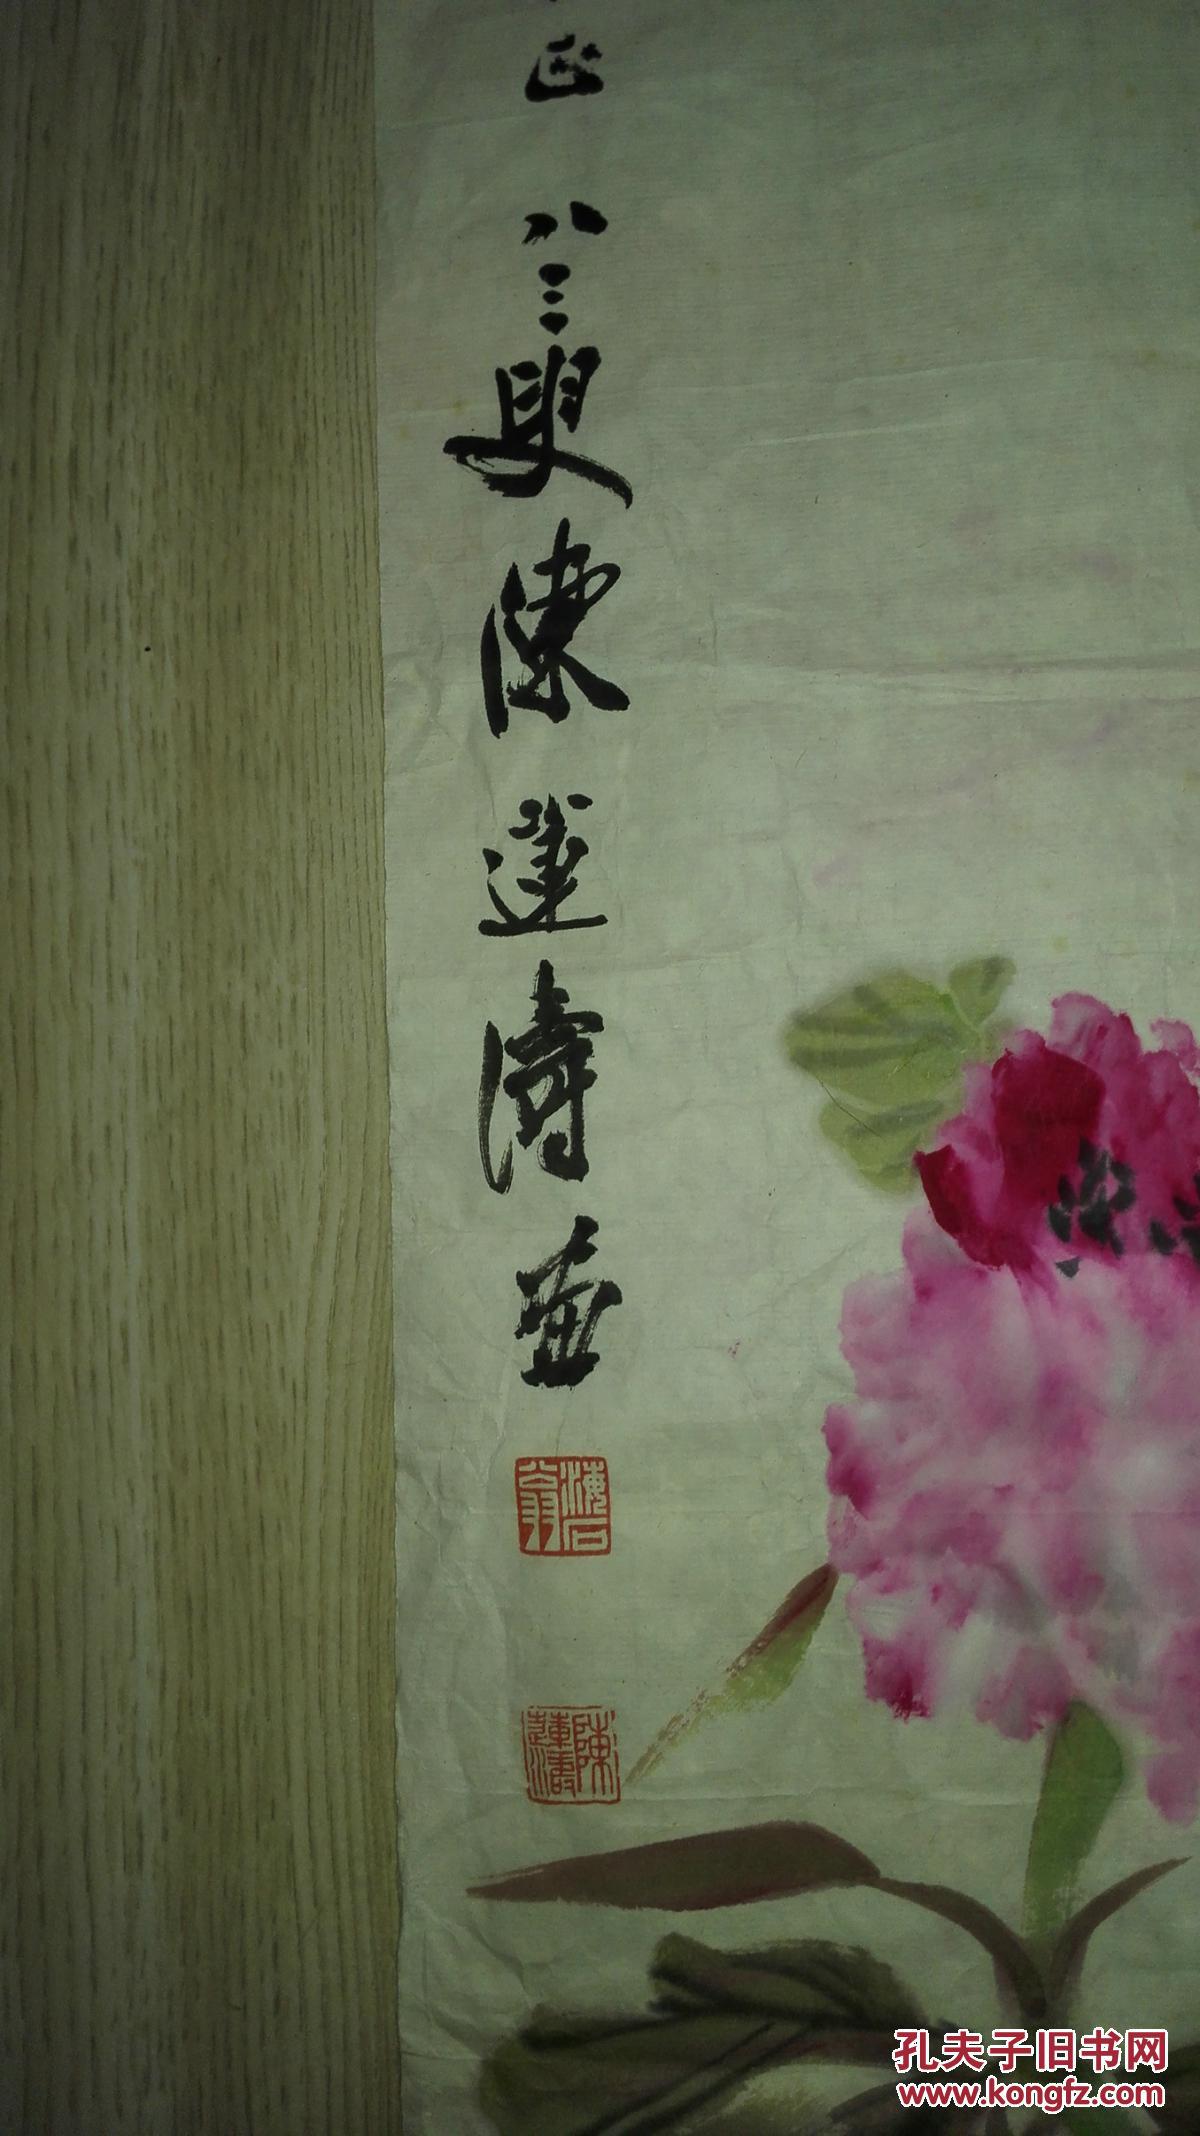 正 八三叟陳蓮濤畫
海石翁
陳蓮濤
孔夫子旧书网
www.kongfz.com